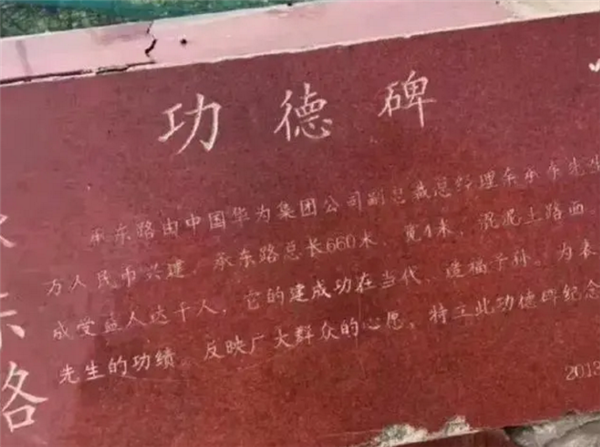 功德碑
承东路由中国华为集团公司副总裁总经理余承东先生
万人民币兴建 承东路总长660米、宽4米，混混土路面。
成受益人达千人，它的建成功在当代、造福子孙。为表
先生的功绩。反映广大群众的心愿，特立此功德碑纪念
2013
东
路